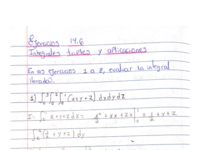 Ejercicios 14.6
Integrales triples y aplicaciones
En los ejercicios 1 a 8, evaluar la integral
iterada.
1) ∫₀³ ∫₀² ∫₀¹ (x+y+z) dx dy dz
I = ∫₀¹ x+y+z dx = x²/2 + xy + zx |₀¹ = 1/2 + y + z
∫₀² (1/2 + y + z) dy